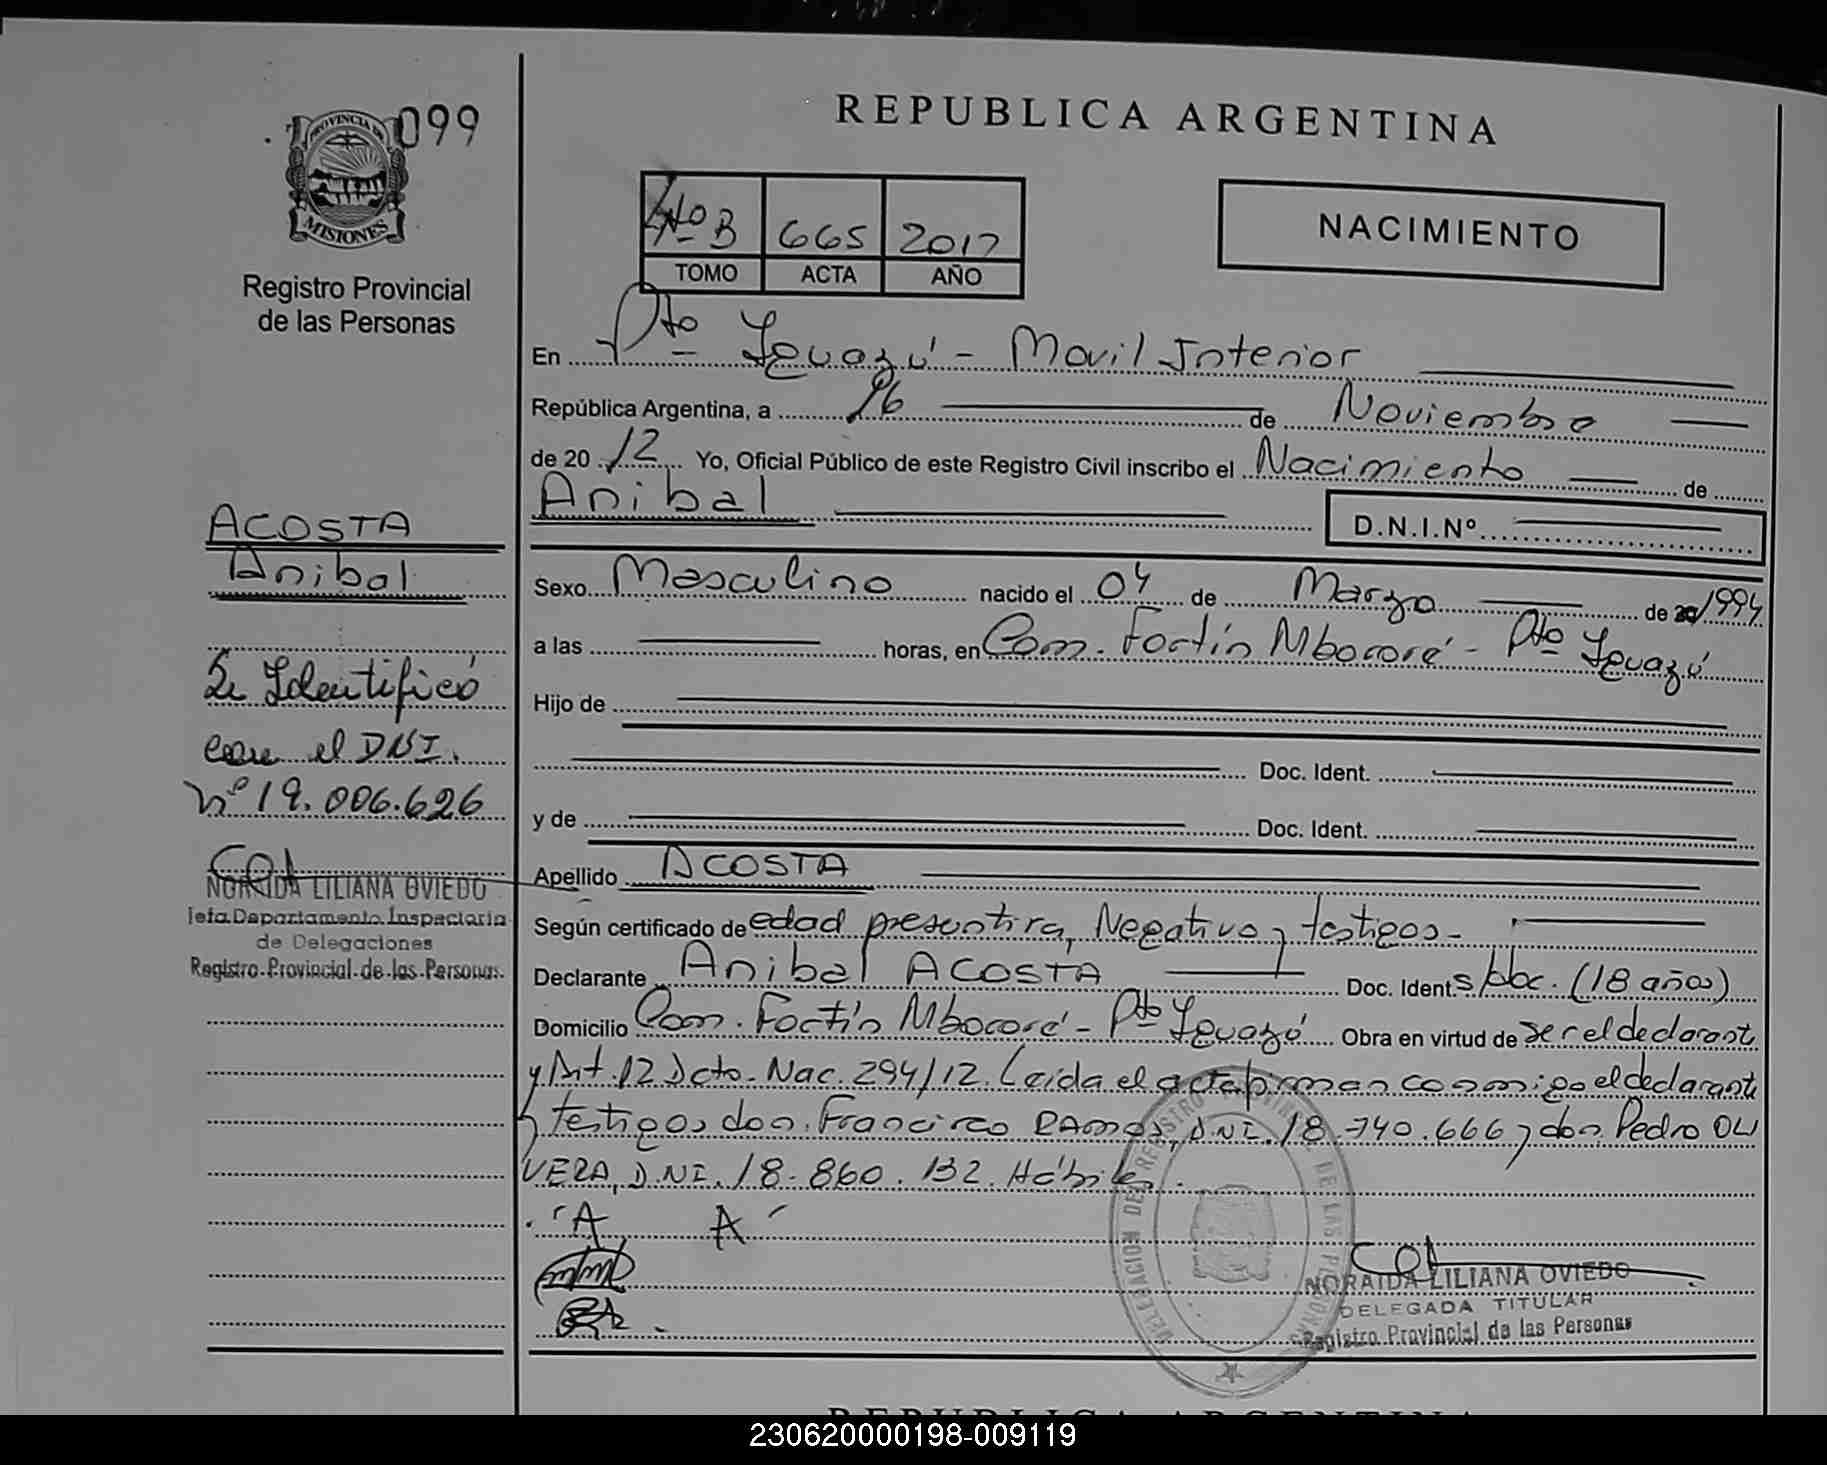 099
PROVINCIA DE
MISIONES
Registro Provincial
de las Personas
REPUBLICA ARGENTINA
4to B 665 2012
TOMO ACTA AÑO
NACIMIENTO
En Pto Iguazú - Movil Interior
República Argentina, a 16 de Noviembre
de 20 12 Yo, Oficial Público de este Registro Civil inscribo el Nacimiento de
Anibal
D.N.I.Nº
ACOSTA
Anibal
Se Identificó
con el DNI.
nº 19.006.626
NORAIDA LILIANA OVIEDO
Jefa Departamento Inspectoria
de Delegaciones
Registro Provincial de las Personas
Sexo Masculino nacido el 04 de Marzo de 20/1994
a las horas, en Com. Fortín Mbororé - Pto Iguazú
Hijo de
Doc. Ident.
y de Doc. Ident.
Apellido ACOSTA
Según certificado de edad presentira, Negativo y testigos-
Declarante Anibal ACOSTA Doc. Ident. s/Doc. (18 años)
Domicilio Com. Fortín Mbocoré - Pto Iguazú Obra en virtud de ser el declarant
y Art. 12 Dcto. Nac. 294/12. Leida el acta firman conmigo el declarante
y testigos don Francisco RAMOS, DNI. 18.740.666 y don Pedro OLI
VERA, D.NI. 18.860.132. Hábiles.
A A
DELEGACION DEL REGISTRO PROVINCIAL DE LAS PERSONAS
NORAIDA LILIANA OVIEDO
DELEGADA TITULAR
Registro Provincial de las Personas
REPUBLICA ARGENTINA
230620000198-009119